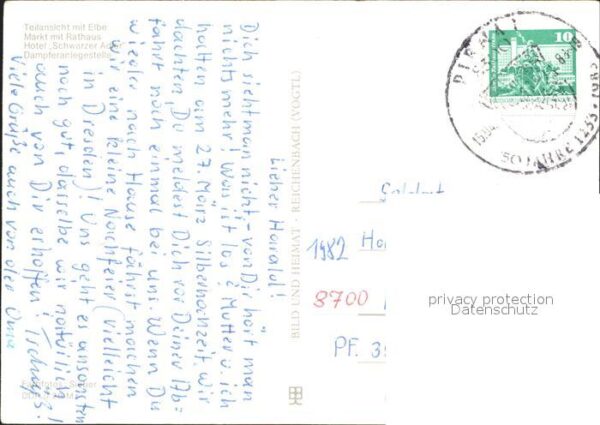 Teilansicht mit Elbe
Markt mit Rathaus
Hotel „Schwarzer Adler“
Dampferanlegestelle
Lieber Harald!
Dich sieht man nicht – von Dir hört man
nichts mehr! Was ist los? Mutter u. ich
hatten am 27. März Silberhochzeit. Wir
dachten, Du meldest Dich vor Deiner Ab=
fahrt noch einmal bei uns. Wenn Du
wieder nach Hause fährst machen
wir eine kleine Nachfeier (vielleicht
in Dresden)! Uns geht es ansonsten
noch gut, dasselbe wir natürlich
auch von Dir erhoffen! Tschüß!
Viele Grüße auch von der Oma
BILD UND HEIMAT · REICHENBACH (VOGTL)
10
PIRNA 1
50 JAHRE 1233 · 1983
1982
8700
PF. 3
privacy protection
Datenschutz